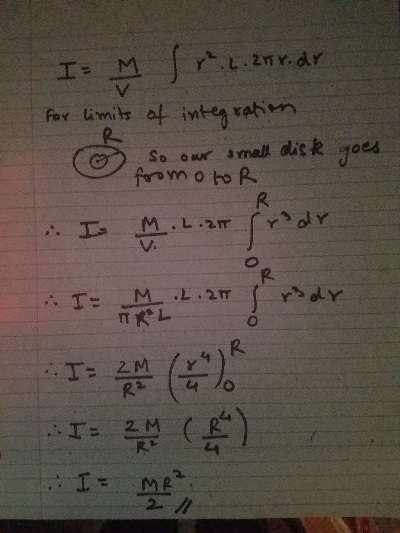 I = M/V ∫ r². L. 2πr. dr
For limits of integration
R
So our small disk goes
from 0 to R
∴ I = M/V. . L . 2π ∫₀ᴿ r³ dr
∴ I = M/πR²L . L . 2π ∫₀ᴿ r³ dr
∴ I = 2M/R² (r⁴/4)₀ᴿ
∴ I = 2M/R² (R⁴/4)
∴ I = MR²/2 //